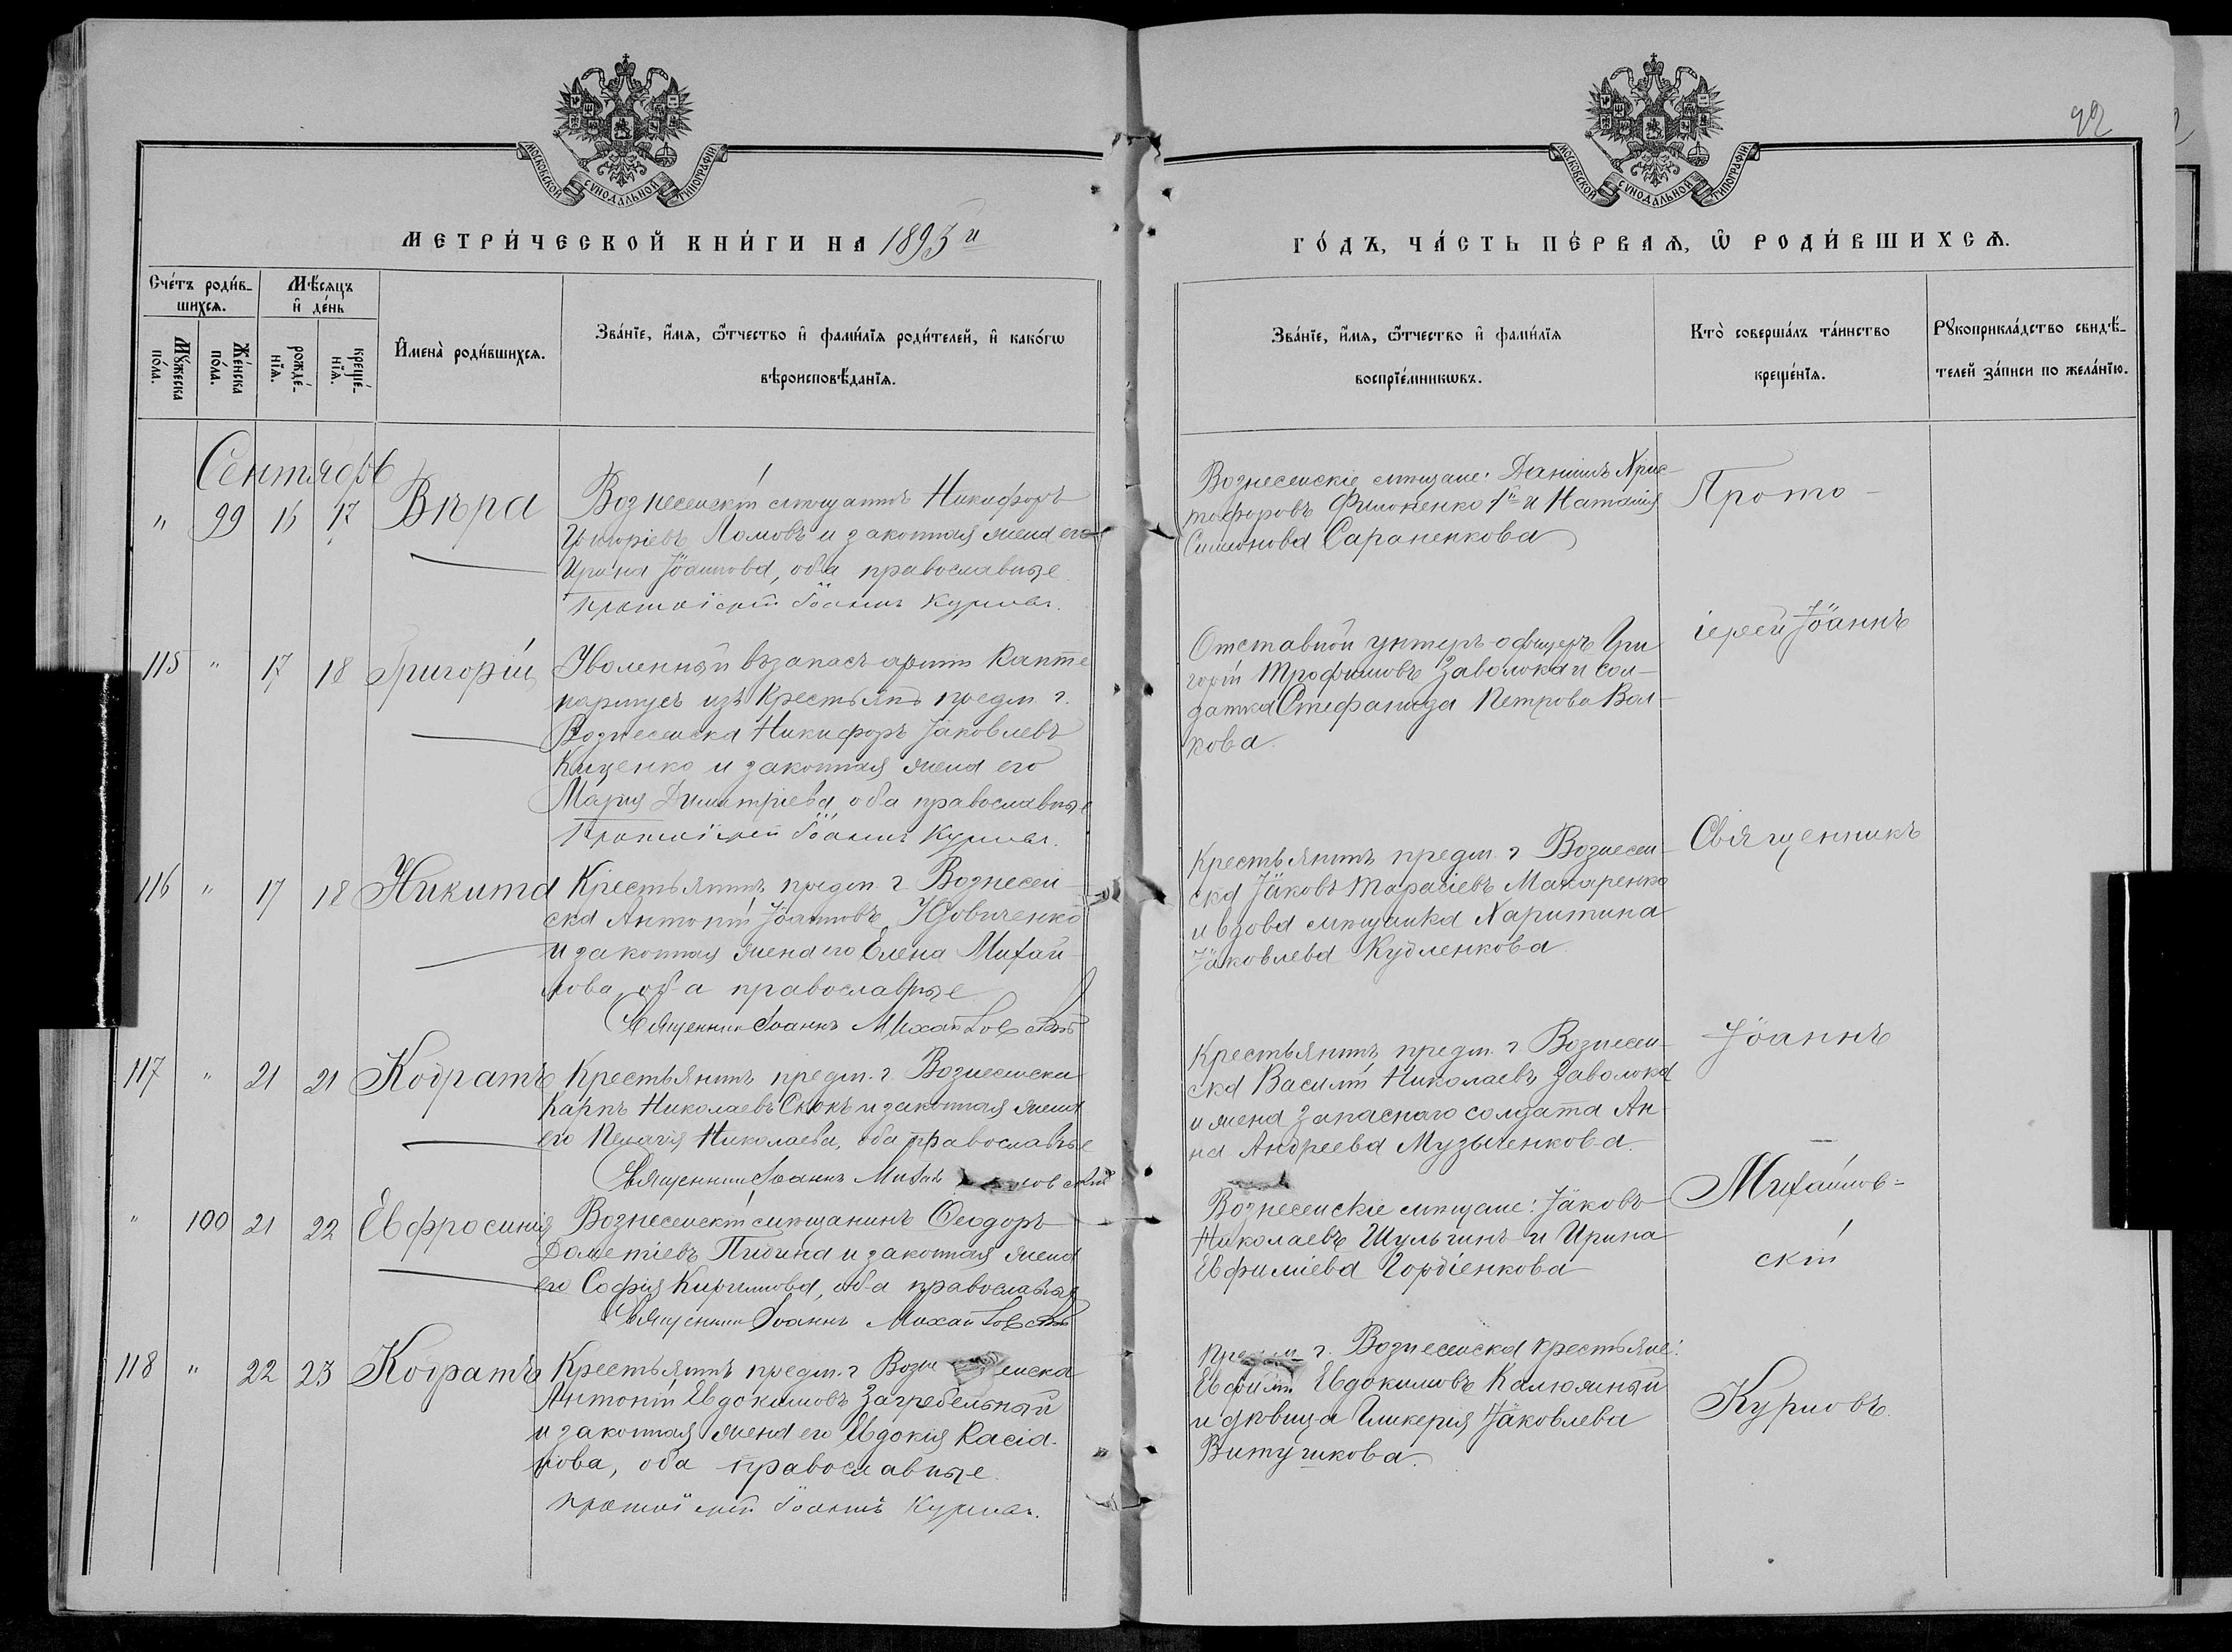 92
МОСКОВСКОЙ СѴНОДАЛЬНОЙ ТИПОГРАФІИ
МОСКОВСКОЙ СѴНОДАЛЬНОЙ ТИПОГРАФІИ
МЕТРИ́ЧЕСКОЙ КНИ́ГИ НА 1893 й
ГО́ДЪ, ЧА́СТЬ ПЕ́РВАѦ, Ѡ҆ РОДИ́ВШИХСѦ.
Сче́тъ роди́в-
шихсѧ.
Мѣ́сѧцъ
и҆ де́нь
Мꙋ́жеска
по́ла.
Же́нска
по́ла.
рожде́-
нїѧ.
креще́-
нїѧ.
И҆мена̀ роди́вшихсѧ.
Зва́нїе, и҆́мѧ, ѻ҆́тчество и҆ фами́лїѧ роди́телей, и҆ како́гѡ
вѣроисповѣ́данїѧ.
Зва́нїе, и҆́мѧ, ѻ҆́тчество и҆ фами́лїѧ
воспрїе́мникѡвъ.
Кто̀ соверша́лъ та́инство
креще́нїѧ.
Рꙋкоприкла́дство свидѣ́-
телей за́писи по жела́нїю.
Сентябрь
" 99 16 17 Вѣра
Вознесенскій мѣщанинъ Никифоръ
Григоріевъ Ломовъ и законная жена его
Ирина Іоаннова, оба православные
Протоіерей Іоаннъ Курловъ.
Вознесенскіе мѣщане: Даніилъ Хрис-
тофоровъ Филоненко и Наталія
Симеонова Сараненкова
115 " 17 18 Григорій
Уволенный въ запасъ арміи Капте-
нармусъ изъ Крестьянъ предм. г.
Вознесенска Никифоръ Іаковлевъ
Кищенко и законная жена его
Марія Димитріева, оба православные
Протоіерей Іоаннъ Курловъ.
Отставной унтеръ-офицеръ Гри
горій Трофимовъ Заволока и сол-
датка Стефанида Петрова Вол-
кова.
116 " 17 18 Никита
Крестьянинъ предм. г. Вознесен-
ска Антоній Іоанновъ Удовиченко
и законная жена его Елена Михай-
лова, оба православные
Священникъ Іоаннъ Михайловскій
Крестьянинъ предм. г. Вознесен-
ска Іаковъ Тарасіевъ Макаренко
и вдова мѣщанка Харитина
Іаковлева Кудленкова.
117 " 21 21 Кодратъ
Крестьянинъ предм. г. Вознесенска
Карпъ Николаевъ Снокъ и законная жена
его Пелагія Николаева, оба православные
Священникъ Іоаннъ Михайловскій
Крестьянинъ предм. г. Вознесен-
ска Василій Николаевъ Заволока
и жена запаснаго солдата Ан-
на Андреева Музыченкова.
" 100 21 22 Евфросинія
Вознесенскій мѣщанинъ Ѳеодоръ
Дометіевъ Пидина и законная жена
его Софія Кириллова, оба православные
Священникъ Іоаннъ Михайловскій
Вознесенскіе мѣщане: Іаковъ
Николаевъ Шульгинъ и Ирина
Евфиміева Гордіенкова
118 " 22 23 Кодратъ
Крестьянинъ предм. г. Возне енска
Антоній Евдокимовъ Загребельный
и законная жена его Евдокія Касіа-
нова, оба православные.
Протоіерей Іоаннъ Курловъ.
Предм. г. Вознесенска крестьяне:
Евфимій Евдокимовъ Калюжный
и дѣвица Гликерія Іаковлева
Витушкова.
Прото-
іерей Іоаннъ
Священникъ
Іоаннъ
Михайлов-
скій
Курловъ.